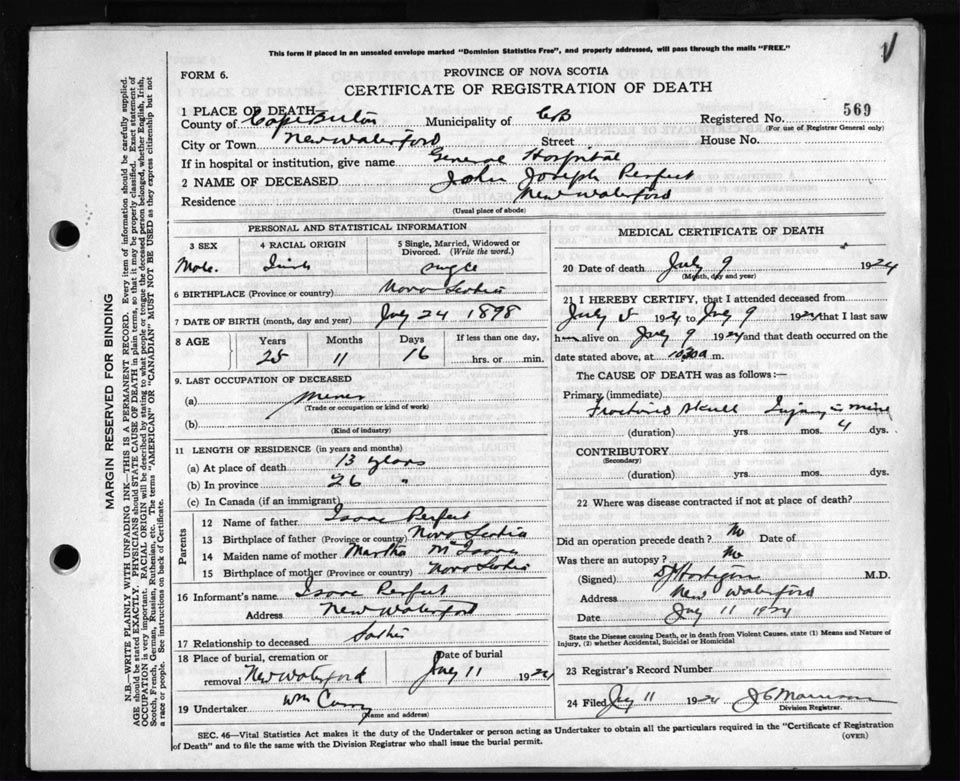 This form if placed in an unsealed envelope marked "Dominion Statistics Free", and properly addressed, will pass through the mails "FREE."
FORM 6.
PROVINCE OF NOVA SCOTIA
CERTIFICATE OF REGISTRATION OF DEATH
1 PLACE OF DEATH—
County of Cape Breton Municipality of CB Registered No. 569
(For use of Registrar General only)
City or Town New Waterford Street House No.
If in hospital or institution, give name General Hospital
2 NAME OF DECEASED John Joseph Perfect
Residence New Waterford
(Usual place of abode)
PERSONAL AND STATISTICAL INFORMATION
3 SEX 4 RACIAL ORIGIN 5 Single, Married, Widowed or Divorced. (Write the word.)
Male. Irish single
6 BIRTHPLACE (Province or country) Nova Scotia
7 DATE OF BIRTH (month, day and year) July 24 1898
8 AGE Years Months Days If less than one day,
25 11 16 hrs. or min.
9. LAST OCCUPATION OF DECEASED
(a) Miner
(Trade or occupation or kind of work)
(b)
(Kind of industry)
11 LENGTH OF RESIDENCE (in years and months)
(a) At place of death 13 years
(b) In province 26 "
(c) In Canada (if an immigrant)
Parents
12 Name of father Isaac Perfect
13 Birthplace of father (Province or country) Nova Scotia
14 Maiden name of mother Martha McIsaac
15 Birthplace of mother (Province or country) Nova Scotia
16 Informant's name Isaac Perfect
Address New Waterford
17 Relationship to deceased Father
18 Place of burial, cremation or removal New Waterford Date of burial July 11 1924
19 Undertaker Wm Curry
(Name and address)
MEDICAL CERTIFICATE OF DEATH
20 Date of death July 9 1924
(Month, day and year)
21 I HEREBY CERTIFY, that I attended deceased from
July 5 1924 to July 9 1924 that I last saw
him alive on July 9 1924 and that death occurred on the
date stated above, at 10 30 a m.
The CAUSE OF DEATH was as follows:—
Primary (immediate)
Fractured skull Injury in mine
(duration) yrs. mos. 4 dys.
CONTRIBUTORY
(Secondary)
(duration) yrs. mos. dys.
22 Where was disease contracted if not at place of death?
Did an operation precede death? No Date of
Was there an autopsy? No
(Signed) M.D.
Address New Waterford
Date July 11 1924
State the Disease causing Death, or in death from Violent Causes, state (1) Means and Nature of Injury, (2) whether Accidental, Suicidal or Homicidal
23 Registrar's Record Number
24 Filed July 11 1924 J C Morrison
Division Registrar.
SEC. 46—Vital Statistics Act makes it the duty of the Undertaker or person acting as Undertaker to obtain all the particulars required in the "Certificate of Registration
of Death" and to file the same with the Division Registrar who shall issue the burial permit.
(OVER)
MARGIN RESERVED FOR BINDING
N.B.—WRITE PLAINLY WITH UNFADING INK—THIS IS A PERMANENT RECORD. Every item of information should be carefully supplied.
AGE should be stated EXACTLY. PHYSICIANS should STATE CAUSE OF DEATH in plain terms, so that it may be properly classified. Exact statement of
OCCUPATION is very important. RACIAL ORIGIN will be described by stating to what people or tongue the deceased person belonged, whether English, Irish,
Scotch, French, German, Russian, Ruthenian, etc. The terms "AMERICAN" OR "CANADIAN" MUST NOT BE USED as they express citizenship but not
a race or people. See instructions on back of Certificate.